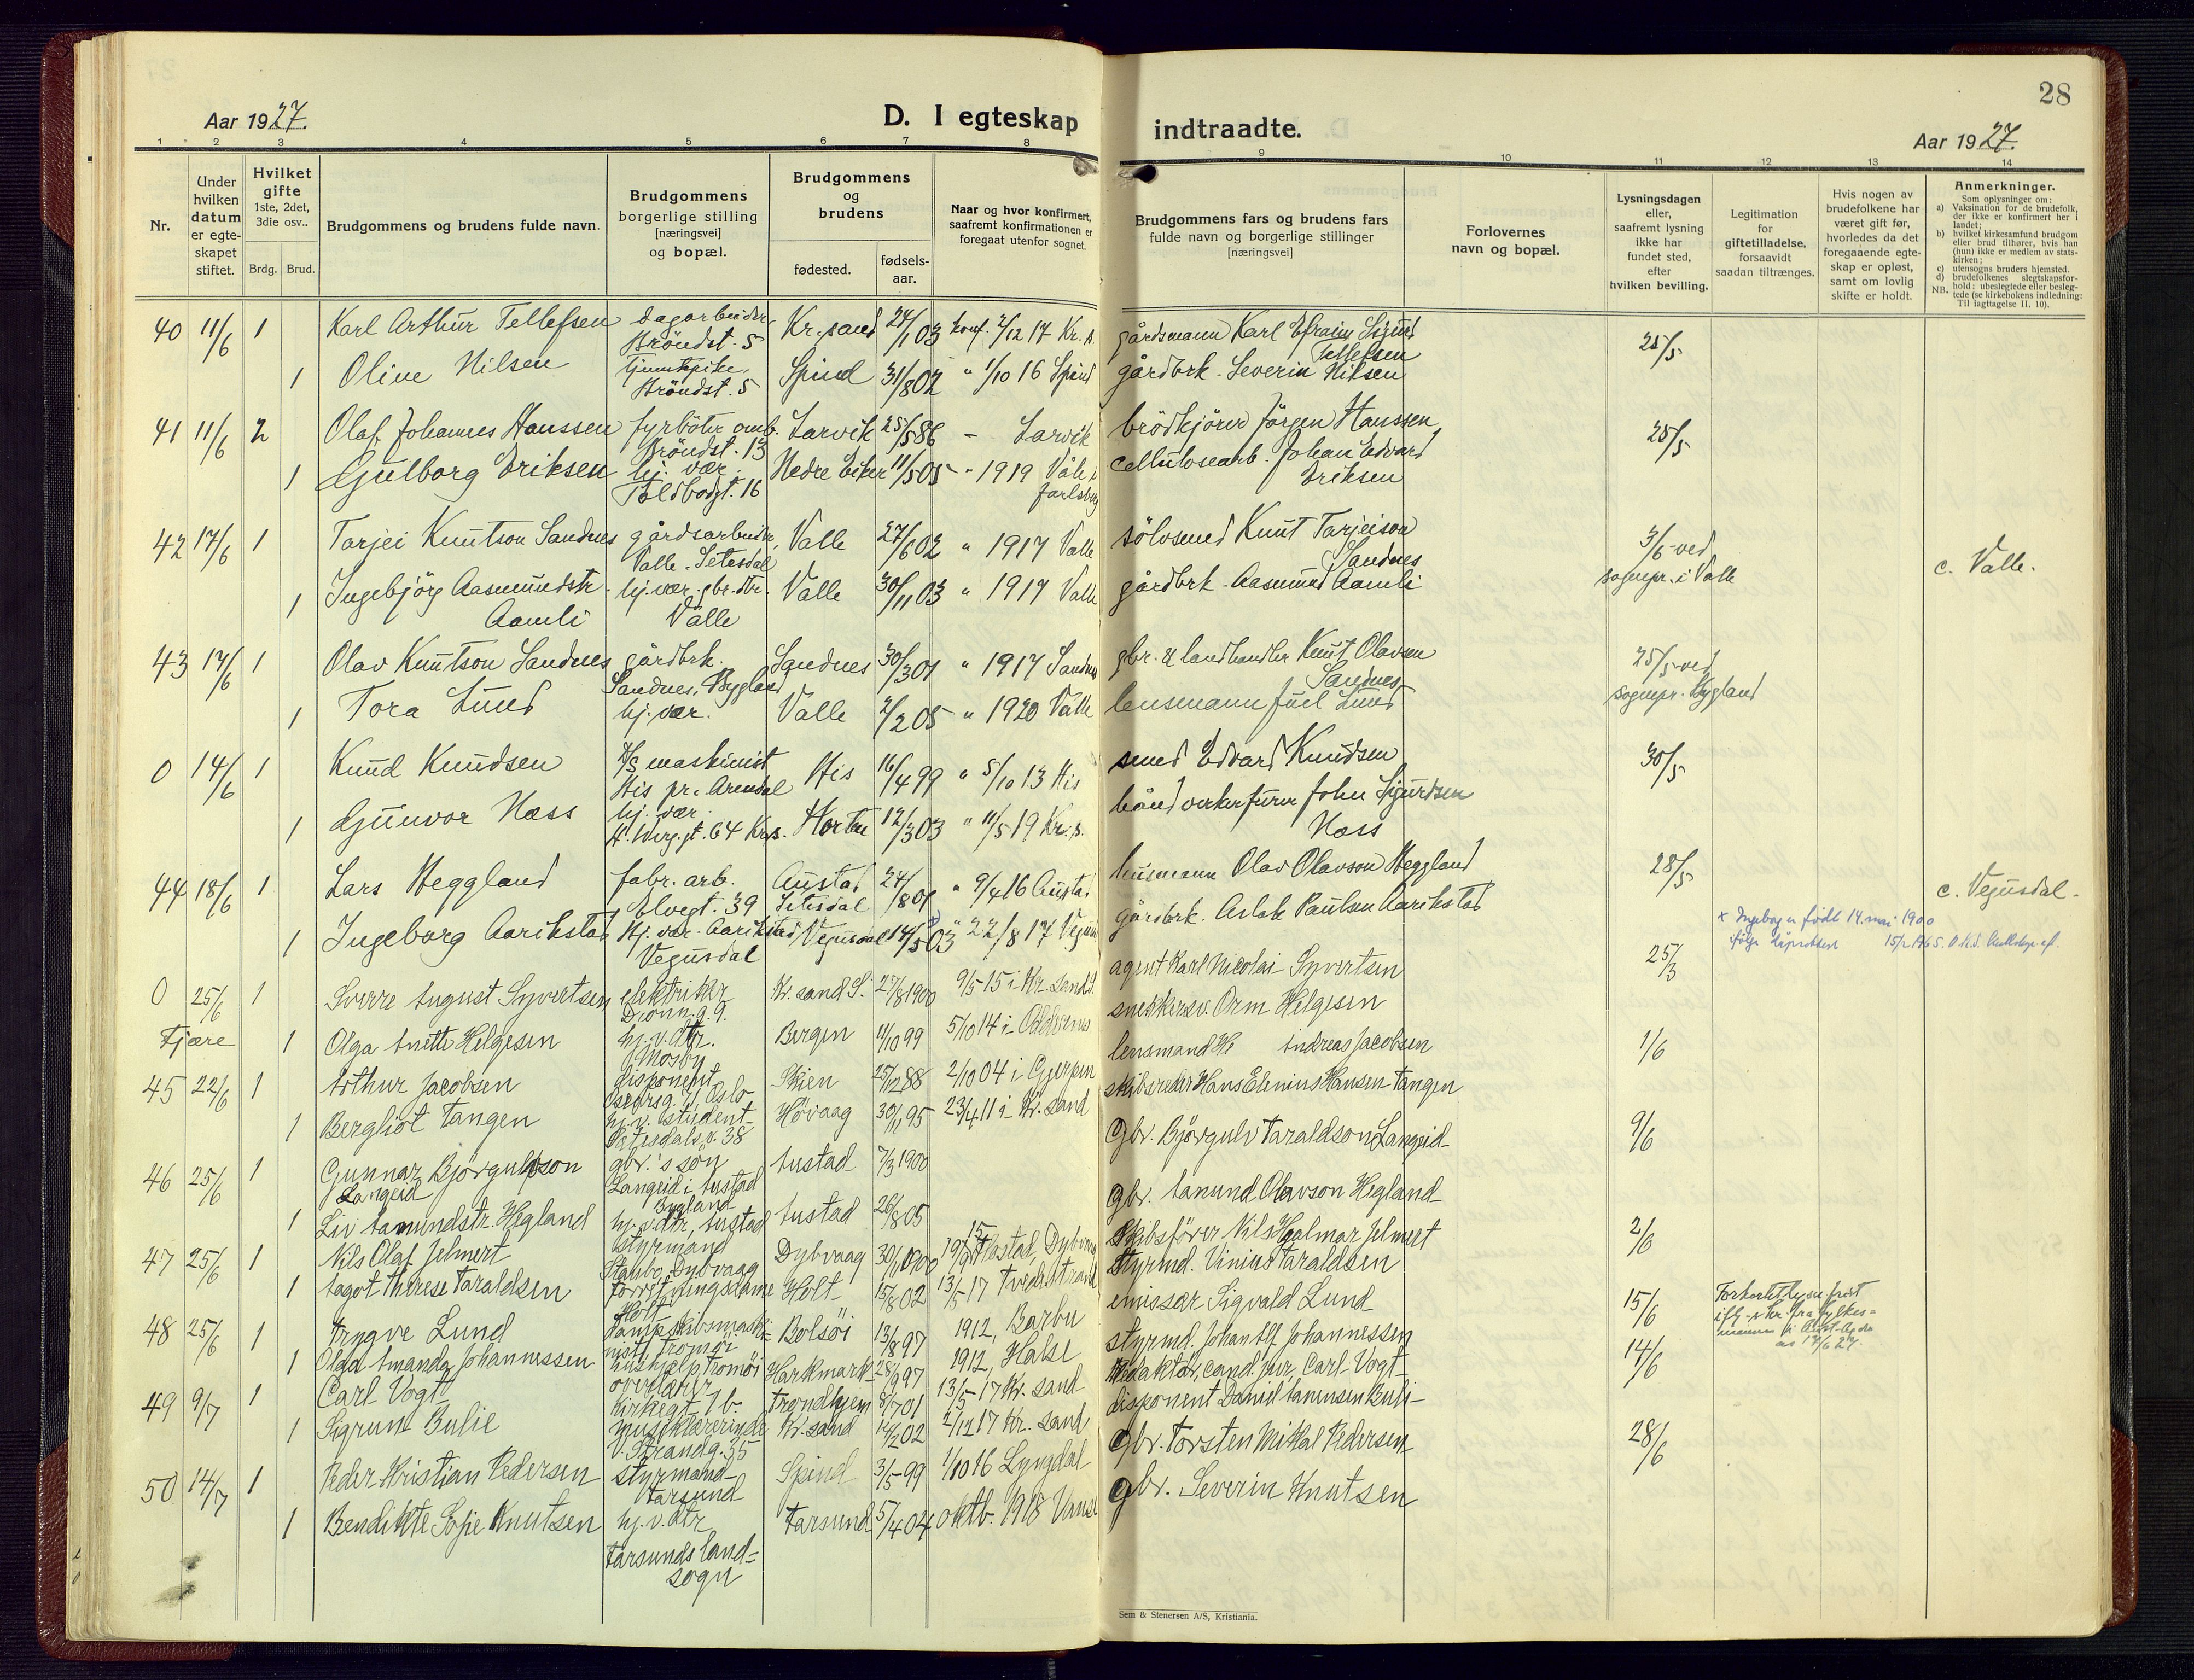 28
Aar 1927.
D. I egteskap
indtraadte.
Aar 1927.
1 2 3 4 5 6 7 8
9 10 11 12 13 14
Nr.
Under hvilken datum er egte-skapet stiftet.
Hvilket gifte 1ste, 2det, 3die osv..
Brdg. Brud.
Brudgommens og brudens fulde navn.
Brudgommens borgerlige stilling [næringsvei] og bopæl.
Brudgommens og brudens
fødested.
fødsels-aar.
Naar og hvor konfirmert, saafremt konfirmationen er foregaat utenfor sognet.
Brudgommens fars og brudens fars fulde navn og borgerlige stillinger [næringsvei]
Forlovernes navn og bopæl.
Lysningsdagen eller, saafremt lysning ikke har fundet sted, efter hvilken bevilling.
Legitimation for giftetilladelse, forsaavidt saadan tiltrænges.
Hvis nogen av brudefolkene har været gift før, hvorledes da det foregaaende egte-skap er opløst, samt om lovlig skifte er holdt.
Anmerkninger.
Som oplysninger om:
a) Vaksination for de brudefolk, der ikke er konfirmert her i landet;
b) hvilket kirkesamfund brudgom eller brud tilhører, hvis han (hun) ikke er medlem av stats-kirken;
c) utensogns bruders hjemsted.
d) brudefolkenes slegtskapsfor-hold: ubeslegtede eller besleg-tede (se kirkebokens indledning: NB. Til iagttagelse II. 10).
40 11/6 1 Karl Arthur Tellefsen dagarbeider, Bröndst. 5 Kr.sand 24/1 03 konf. 2/12 17 Kr.s. gårdsmann Karl Efraim Sigurd Tellefsen 25/5
1 Oline Nilsen tjenestepike, Bröndst. 5 Spind 31/8 02 " 1/10 16 Spind gårdbrk. Severin Nilsen
41 11/6 2 Olaf Johannes Hanssen fyrböter omb. Bröndst. 13 Larvik 25/5 86 - Larvik brödkjörer Jörgen Hanssen 25/5
1 Gulborg Eriksen hj. vær. Toldbodgt. 16 Nedre Eiker 11/5 05 - 1919 Våle i Jarlsberg cellulosearb. Johan Edvard Eriksen
42 17/6 1 Tarjei Knutson Sandnes gårdsarbeider, Valle. Setesdal Valle 27/6 02 " 1917 Valle sölvsmed Knut Tarjeison Sandnes 3/6 ved sognepr. i Valle c. Valle.
1 Ingebjörg Aasmundstr. Aamli hj. vær. gbr. dtr. Valle Valle 30/11 03 " 1917 Valle gårdbrk. Aasmund Aamli
43 17/6 1 Olav Knutson Sandnes gårdbrk. Sandnes, Bygland Sandnes 30/3 01 " 1917 Sandnes gbr. & landhandler Knut Olavson Sandnes 25/5 ved sognepr. Bygland
1 Tora Lund hj. vær. Valle 2/2 05 " 1920 Valle lensmann Juel Lund
0 14/6 1 Knud Knudsen D/S maskinist His pr. Arendal His 16/4 99 " 5/10 13 His smed Edvard Knudsen 30/5
1 Gunvor Næss hj. vær. H. Werg. gt. 64 Kr.s. Horten 12/3 03 " 11/5 19 Kr.s. håndverkerfurer John Sigurdsen Næss
44 18/6 1 Lars Heggland fabr. arb. Elvegt. 39 Austad Setesdal 24/8 01 " 9/4 16 Austad husmann Olav Olavson Heggland 28/5 c. Vegusdal.
1 Ingeborg Aarikstad Hj. vær. Aarikstad, Vegusdal Vegusdal 14/5 03 " 22/8 17 Vegusd gårdbrk. Aslak Paulsen Aarikstad
x Ingeborg er född 14. mai 1900
ifølge dåprotokoll 15/2 1965.
0 25/6 1 Sverre August Syvertsen elektriker Dronn. g. 9. Kr.sand S. 27/8 1900 9/5 15 i Kr.sand S. agent Karl Nicolai Syvertsen 25/3
Fjære 1 Olga Anette Helgesen hj. v. dtr. Mosby Bergen 11/10 99 5/10 14 i Oddernes snedkersv. Orm Helgesen
45 22/6 1 Arthur Jacobsen disponent Oscarsg. 71 Oslo Skien 25/12 88 2/10 04 i Gjerpen lensmand He Andreas Jacobsen 1/6
1 Bergliot Tangen hj. v. student Setesdalsv. 38 Hövaag 30/11 95 23/4 11 i Kr.sand skibsreder Hans Elenius Hansen Tangen
46 25/6 1 Gunnar Björgulvson Langeid gbr.'s sön Langeid i Austad Bygland Austad 7/3 1900 Gbr. Björgulv Taraldson Langeid 9/6
1 Liv Aanundstr. Hegland hj. v. dtr, Austad Austad 26/8 05 Gbr. Aanund Olavson Hegland
47 25/6 1 Nils Olaf Jelmert styrmand Staubo, Dybvaag Dybvaag 30/11 1900 19/9 15 Flostad, Dybvaag Skibsförer Nils Hjalmar Jelmert 2/6
1 Aagot Therese Taraldsen forretningsdame Holt Holt 15/8 02 13/5 17 Tvedestrand Styrmd. Vinius Taraldsen
48 25/6 1 Trygve Lund dampskibsmaskinist, Tromöi Bolsöi 13/8 97 1912, Barbu emissær Sigvald Lund 15/6 Forkortet lysn. frist ifl. skr. fra fylkesmannen i Aust-Agder av 14/6 27.
1 Olga Amanda Johannessen hushjelp Tromöi Harkmark 28/9 97 1912, Halse styrmd. Johan Alf Johannessen
49 9/7 1 Carl Vogt overlærer Kirkegt. 1 b. Trondhjem 8/7 01 13/5 17 Kr.sand Redaktör, cand. jur. Carl Vogt 14/6
1 Sigrun Bulie musiklærerinde V. Strandg. 35 Kr.sand 14/2 02 2/12 17 Kr.sand disponent Daniel Aanensen Buli
50 14/7 1 Peder Kristian Pedersen styrmand Farsund Spind 3/5 99 1/10 16 Lyngdal Gbr. Torsten Mikal Pedersen 28/6
1 Bendikte Sofie Knutsen hj. v. dtr Farsunds land=sogn Farsund 5/4 04 oktb. 1918 Vanse Gbr. Severin Knutsen
Sem & Stenersen A/S, Kristiania.